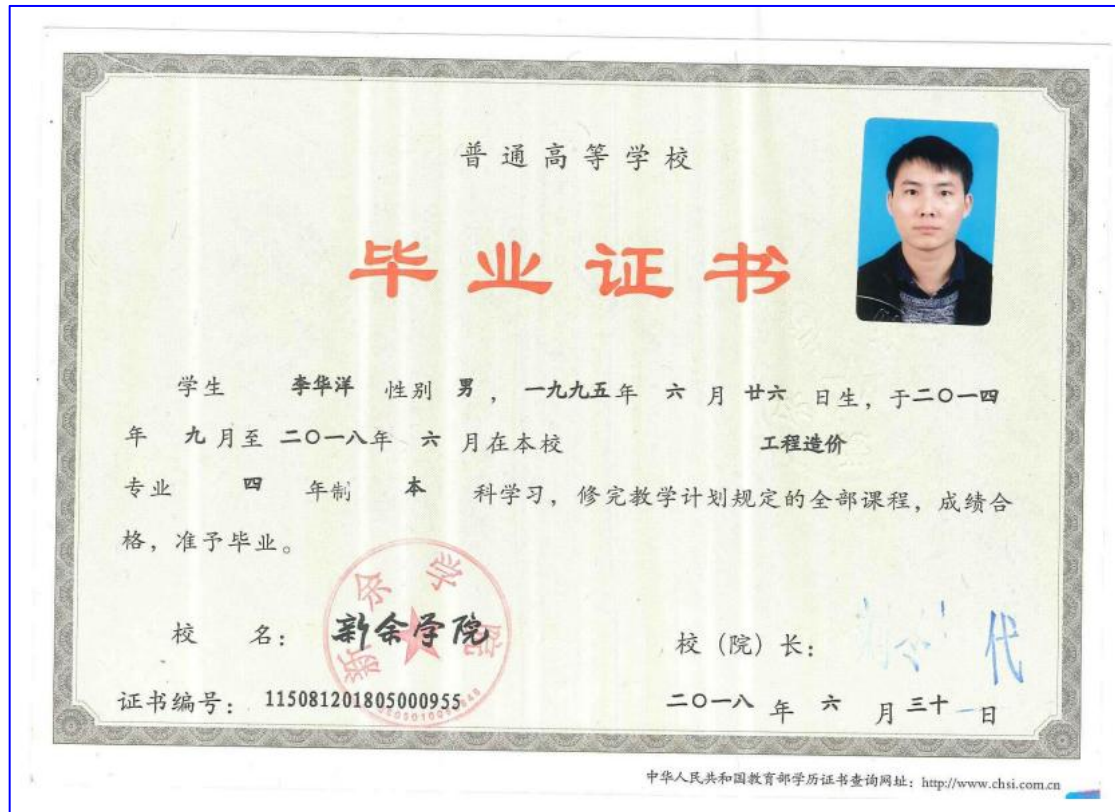 普通高等学校
毕业证书
学生 李华洋 性别 男 ，一九九五年 六 月 廿六 日生，于二〇一四
年 九月至 二〇一八年 六 月在本校 工程造价
专业 四 年制 本 科学习，修完教学计划规定的全部课程，成绩合
格，准予毕业。
新余学院
校 名：新余学院
校（院）长： 代
证书编号：115081201805000955
二〇一八 年 六 月三十 日
中华人民共和国教育部学历证书查询网址：http://www.chsi.com.cn